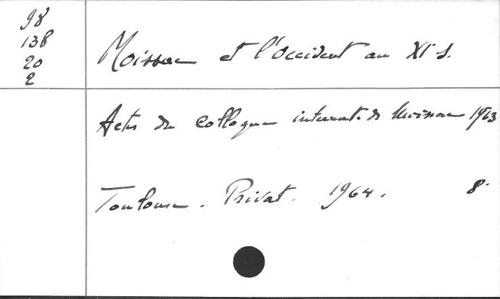 98
138
20
2
Moissac et l'Occident au XIe s.
Actes du Colloque internat. de Moissac 1963
Toulouse. Privat. 1964. 8°